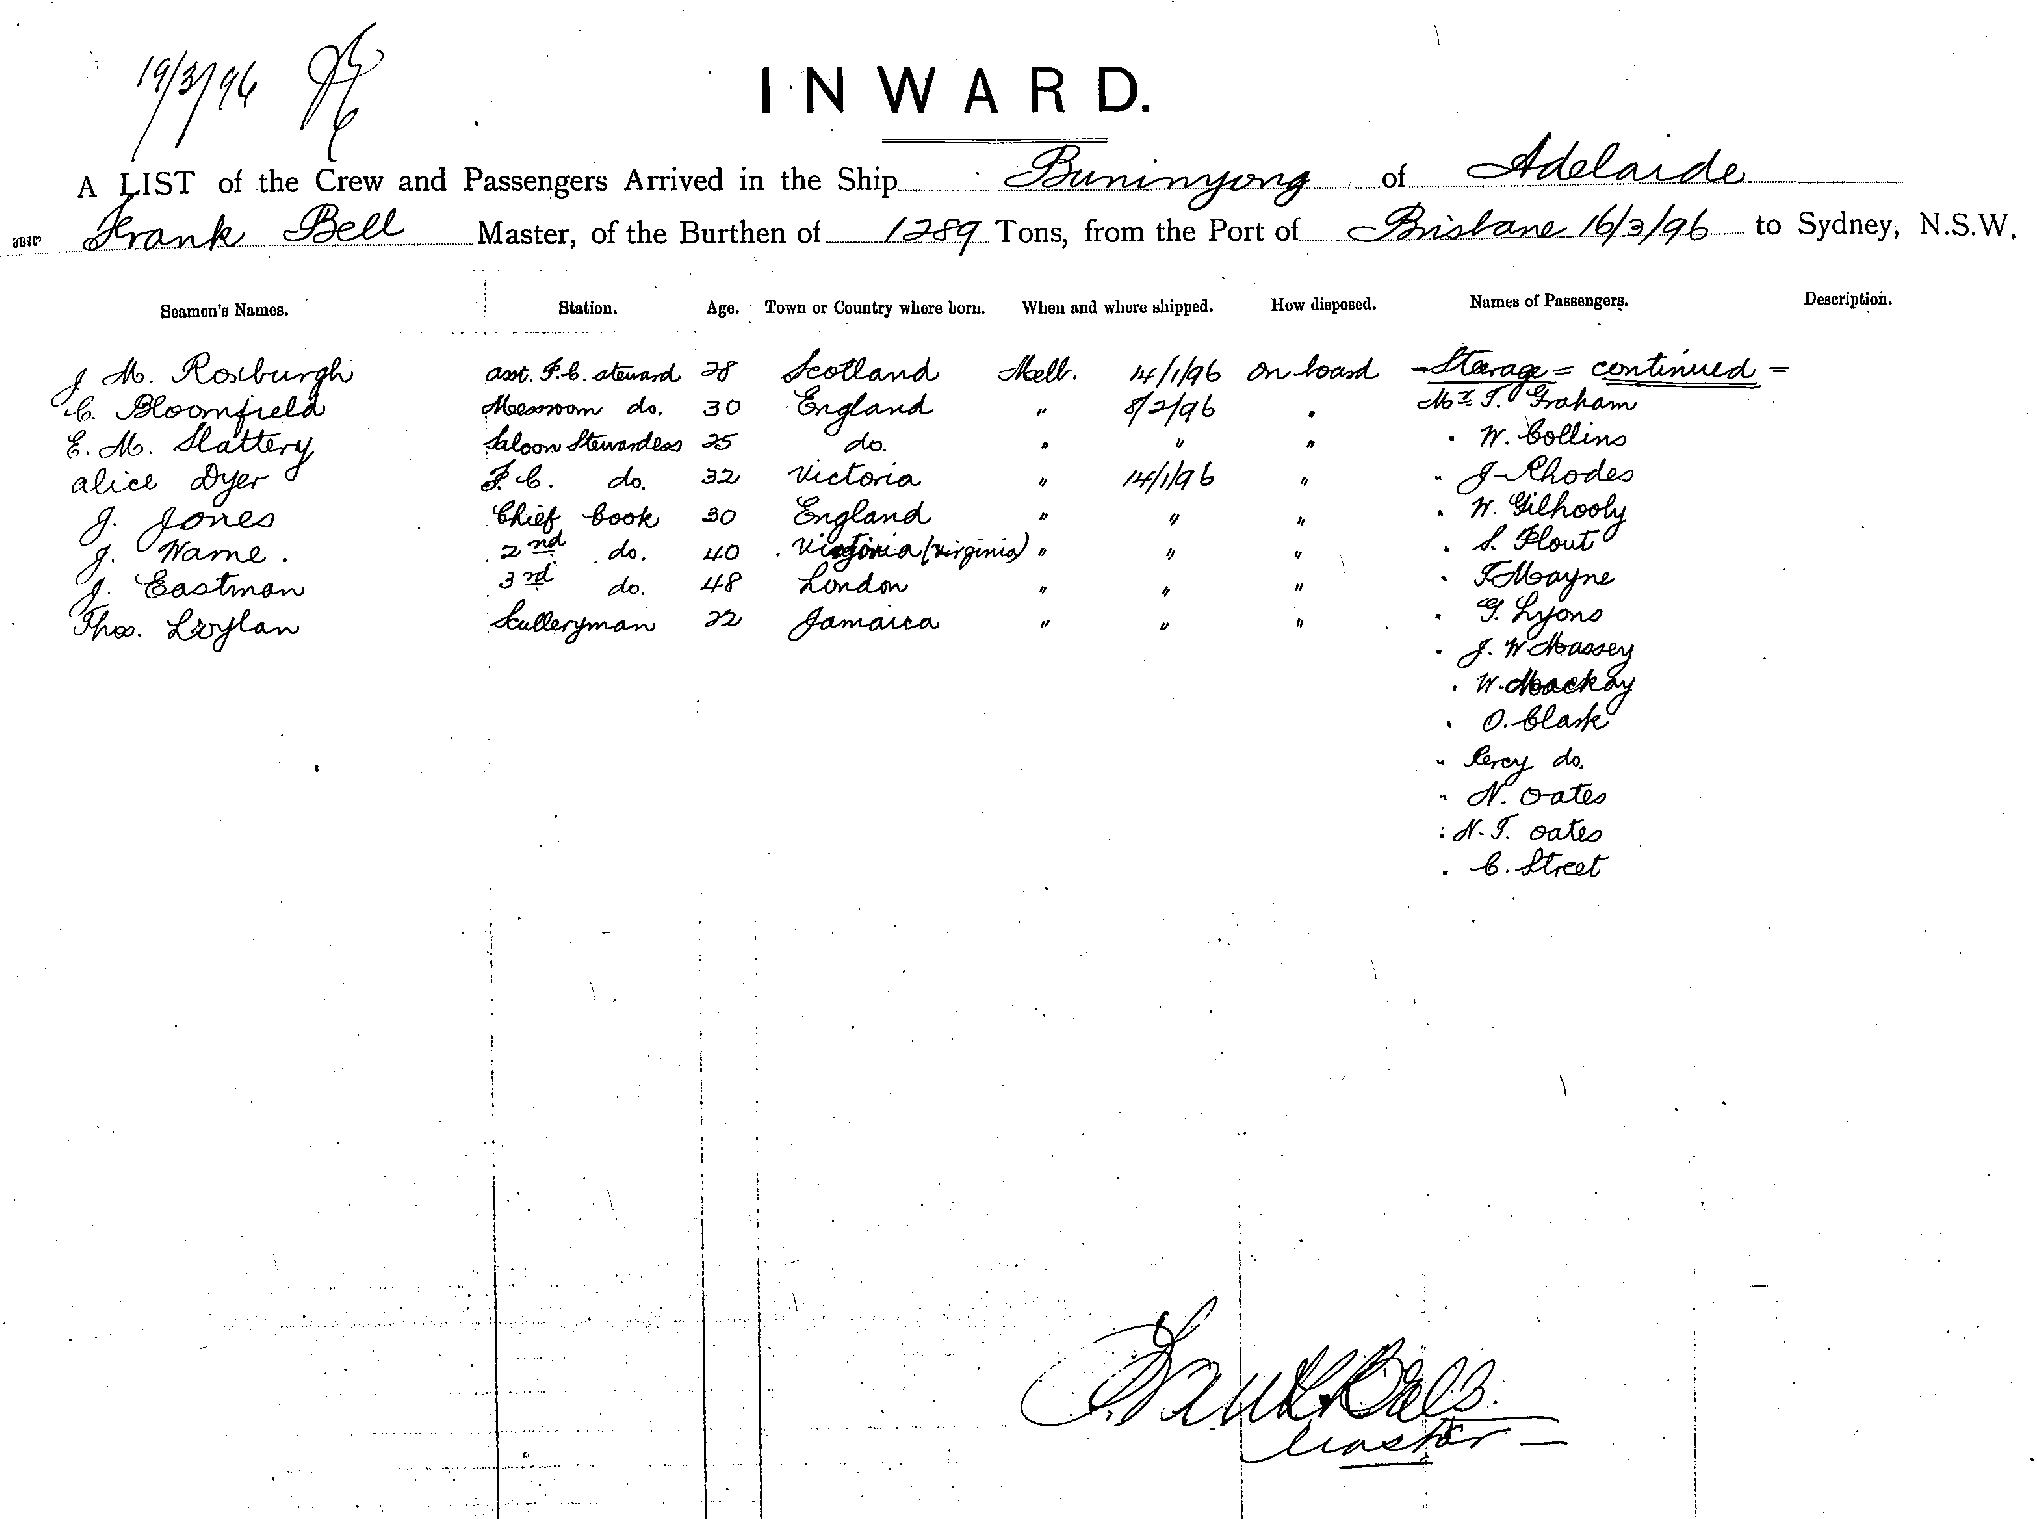 19/3/96
INWARD.
A LIST of the Crew and Passengers Arrived in the Ship Buninyong of Adelaide
Frank Bell Master, of the Burthen of 1289 Tons, from the Port of Brisbane 16/3/96 to Sydney, N.S.W.
Seamen's Names. Station. Age. Town or Country where born. When and where shipped. How disposed. Names of Passengers. Description.
J M. Roxburgh asst. F.C. steward 28 Scotland Melb. 14/1/96 On board - Steerage = continued =
C. Bloomfield Messroom do. 30 England " 8/2/96 " Mr T. Graham
E. M. Slattery Saloon Stewardess 25 do. " " " " W. Collins
Alice Dyer F. C. do. 32 Victoria " 14/1/96 " " J Rhodes
J. Jones Chief Cook 30 England " " " " W. Gilhooly
J. Warne. 2nd do. 40 (Virginia) " " " " S. Flout
J. Eastman 3rd do. 48 London " " " " T Mayne
Thos. Sculleryman 22 Jamaica " " " " G. Lyons
" J. W Massey
" W. Mackay
" O. Clark
" Percy do.
" N. Oates
" N. T. Oates
" C. Street
Frank Bell.
Master